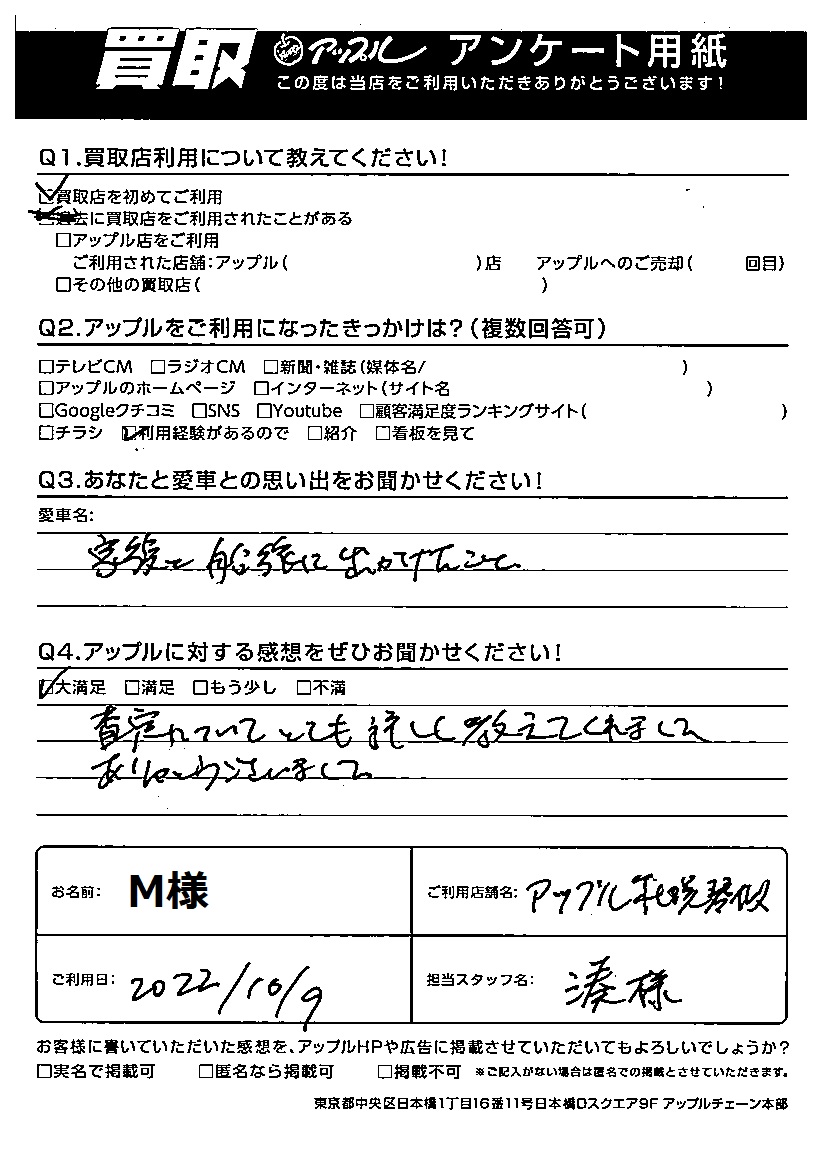 買取 アップル アンケート用紙
この度は当店をご利用いただきありがとうございます!
Q1.買取店利用について教えてください!
☑買取店を初めてご利用
過去に買取店をご利用されたことがある
□アップル店をご利用
ご利用された店舗:アップル( )店 アップルへのご売却( 回目)
□その他の買取店( )
Q2.アップルをご利用になったきっかけは?(複数回答可)
□テレビCM □ラジオCM □新聞・雑誌(媒体名/ )
□アップルのホームページ □インターネット(サイト名 )
□Googleクチコミ □SNS □Youtube □顧客満足度ランキングサイト( )
□チラシ ☑利用経験があるので □紹介 □看板を見て
Q3.あなたと愛車との思い出をお聞かせください!
愛車名:
家族と 船釣に 出かけたこと
Q4.アップルに対する感想をぜひお聞かせください!
☑大満足 □満足 □もう少し □不満
査定れていて とても 詳しく 教えてくれました
ありがとうございました
お名前: M様
ご利用店舗名: アップル札幌琴似
ご利用日: 2022/10/9
担当スタッフ名: 湊様
お客様に書いていただいた感想を、アップルHPや広告に掲載させていただいてもよろしいでしょうか?
□実名で掲載可 □匿名なら掲載可 □掲載不可 ※ご記入がない場合は匿名での掲載とさせていただきます。
東京都中央区日本橋1丁目16番11号日本橋Dスクエア9F アップルチェーン本部